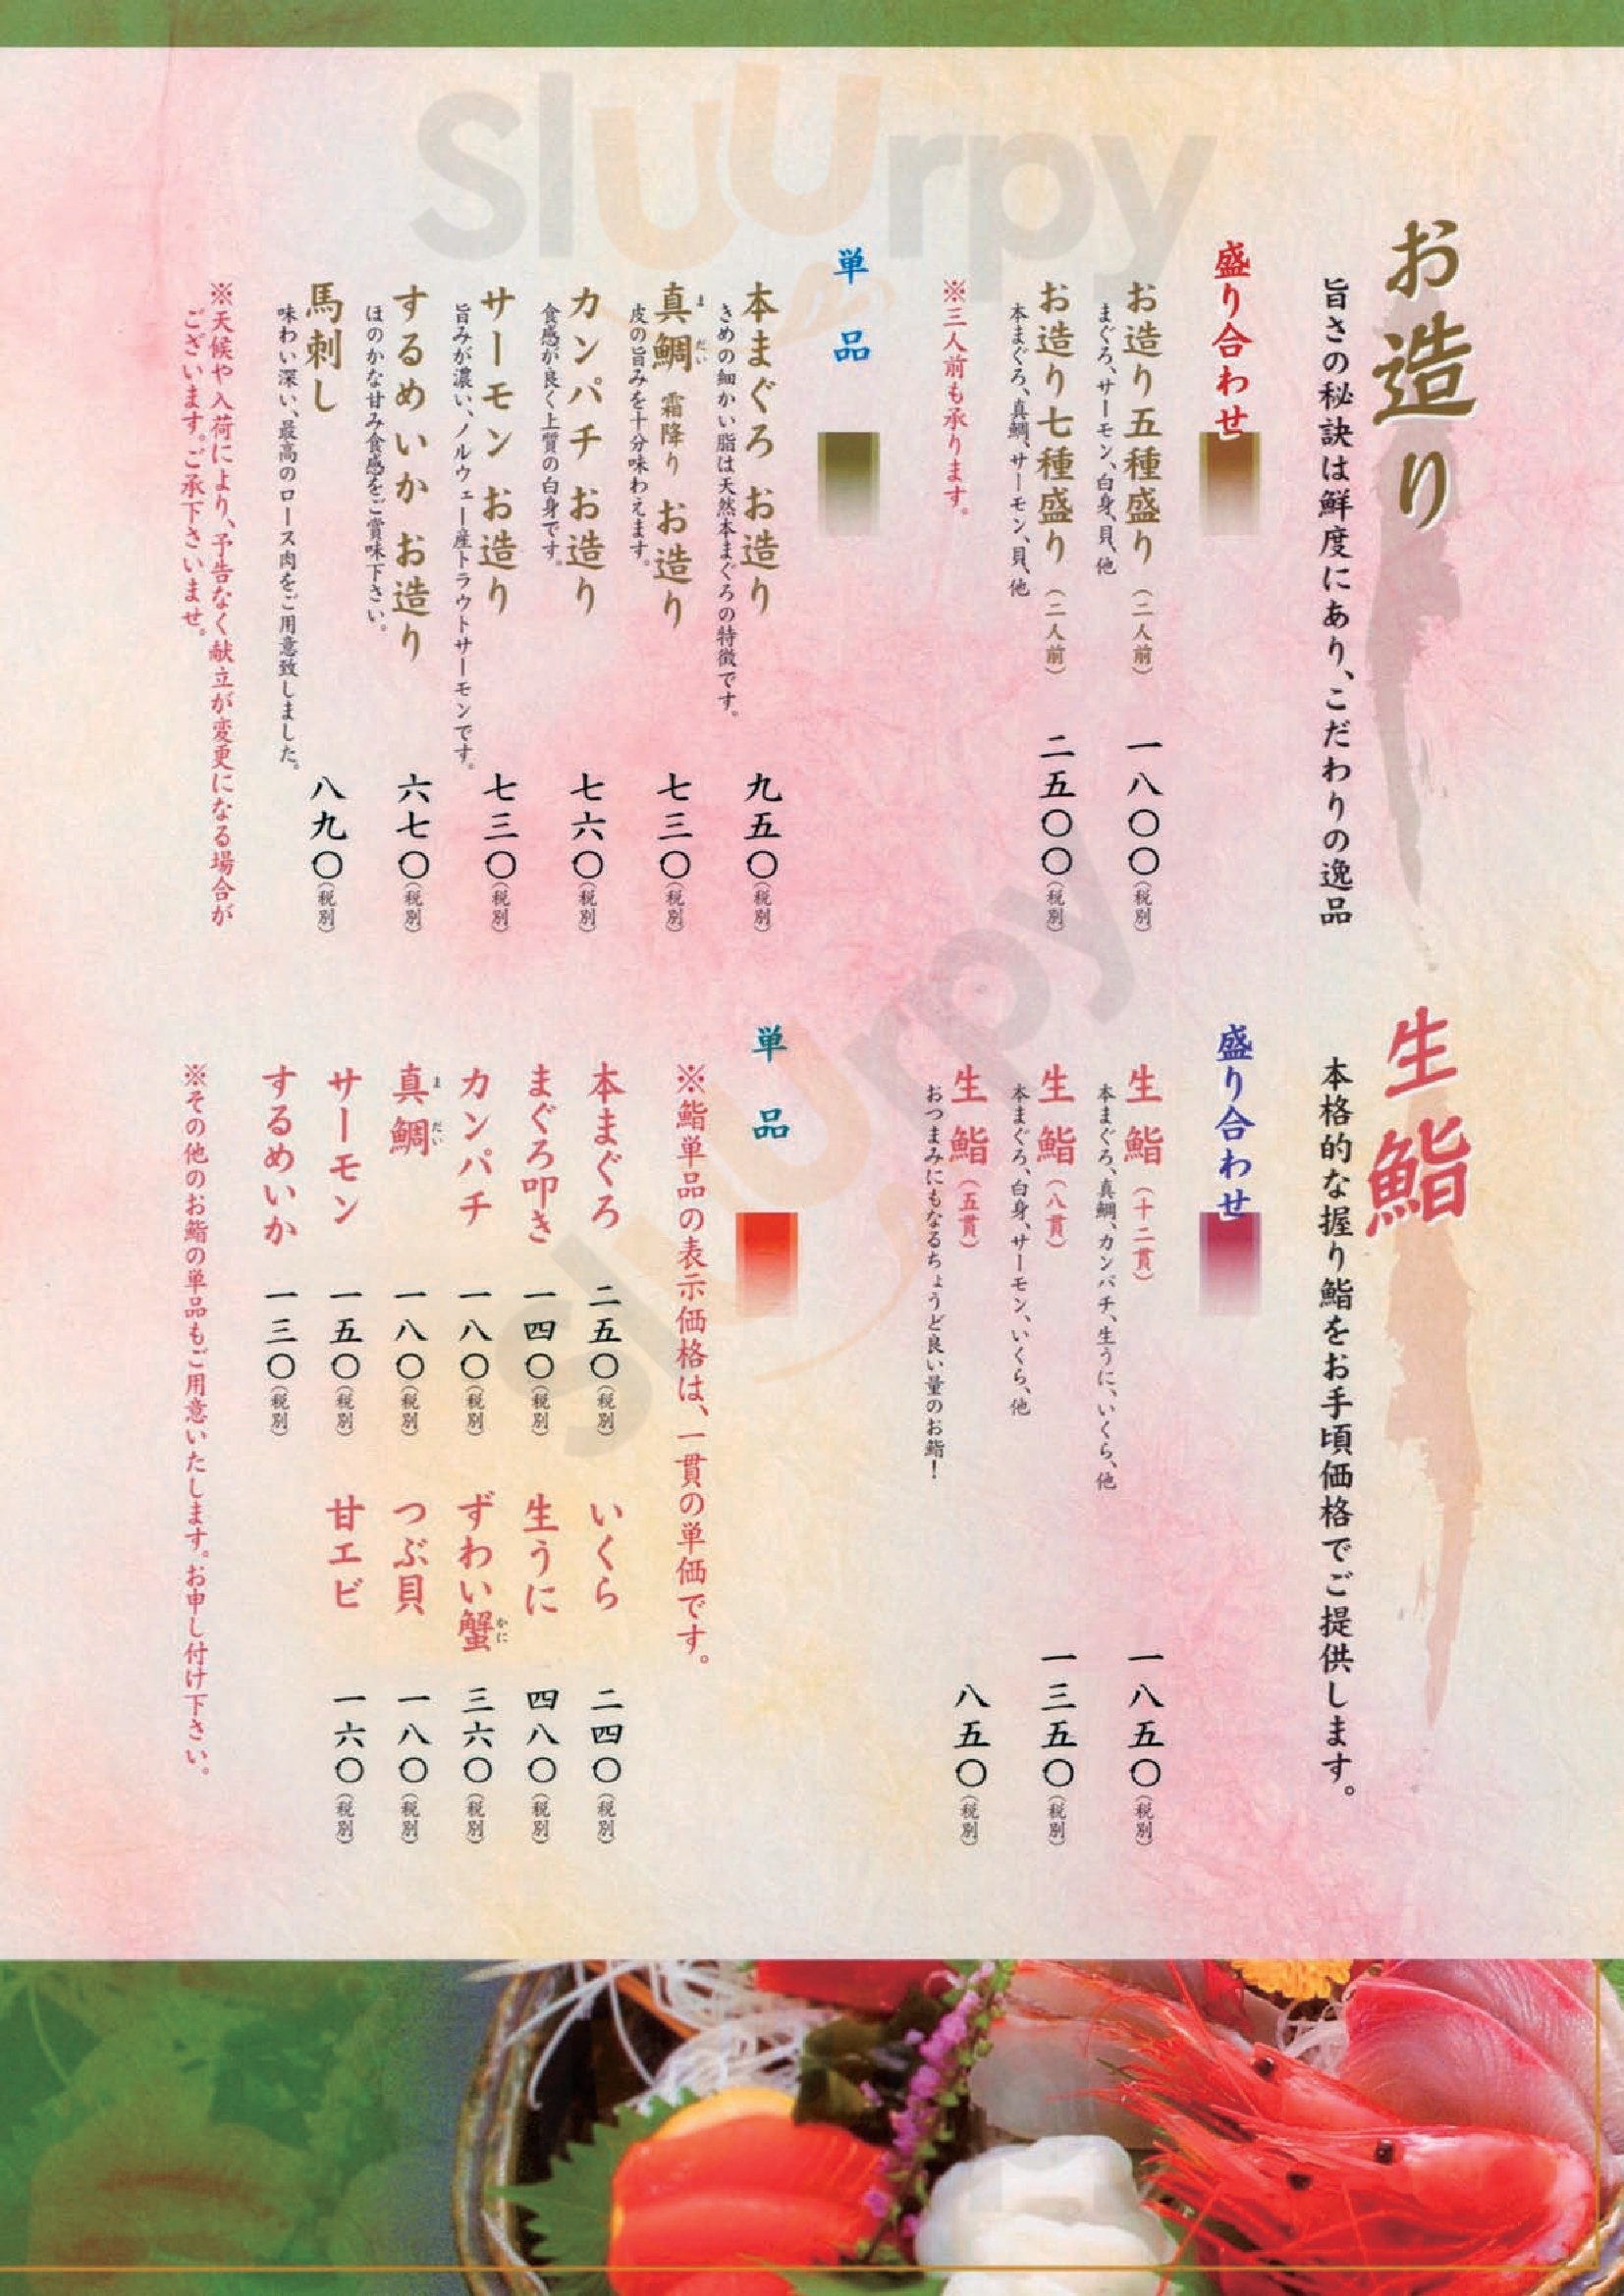 お造り
旨さの秘訣は鮮度にあり、こだわりの逸品
盛り合わせ
お造り五種盛り（二人前） 一八〇〇（税別）
まぐろ、サーモン、白身、貝、他
お造り七種盛り（二人前） 二五〇〇（税別）
本まぐろ、真鯛、サーモン、貝、他
※三人前も承ります。
単品
本まぐろ お造り 九五〇（税別）
きめの細かい脂は天然本まぐろの特徴です。
真鯛 霜降り お造り 七三〇（税別）
ま だい
皮の旨みを十分味わえます。
カンパチ お造り 七六〇（税別）
食感が良く上質の白身です。
サーモン お造り 七三〇（税別）
旨みが濃い、ノルウェー産トラウトサーモンです。
するめいか お造り 六七〇（税別）
ほのかな甘み食感をご賞味下さい。
馬刺し 八九〇（税別）
味わい深い、最高のロース肉をご用意致しました。
※天候や入荷により、予告なく献立が変更になる場合が
ございます。ご承下さいいませ。
生鮨
本格的な握り鮨をお手頃価格でご提供します。
盛り合わせ
生鮨（十二貫） 一八五〇（税別）
本まぐろ、真鯛、カンパチ、生うに、いくら、他
生鮨（八貫） 一三五〇（税別）
本まぐろ、白身、サーモン、いくら、他
生鮨（五貫） 八五〇（税別）
おつまみにもなるちょうど良い量のお鮨！
単品
※鮨単品の表示価格は、一貫の単価です。
本まぐろ 二五〇（税別）
まぐろ叩き 一四〇（税別）
カンパチ 一八〇（税別）
真鯛 一八〇（税別）
ま だい
サーモン 一五〇（税別）
するめいか 一三〇（税別）
いくら 二四〇（税別）
生うに 四八〇（税別）
ずわい蟹 三六〇（税別）
かに
つぶ貝 一八〇（税別）
甘エビ 一六〇（税別）
※その他のお鮨の単品もご用意いたします。お申し付け下さい。
Sluurpy
Sluurpy